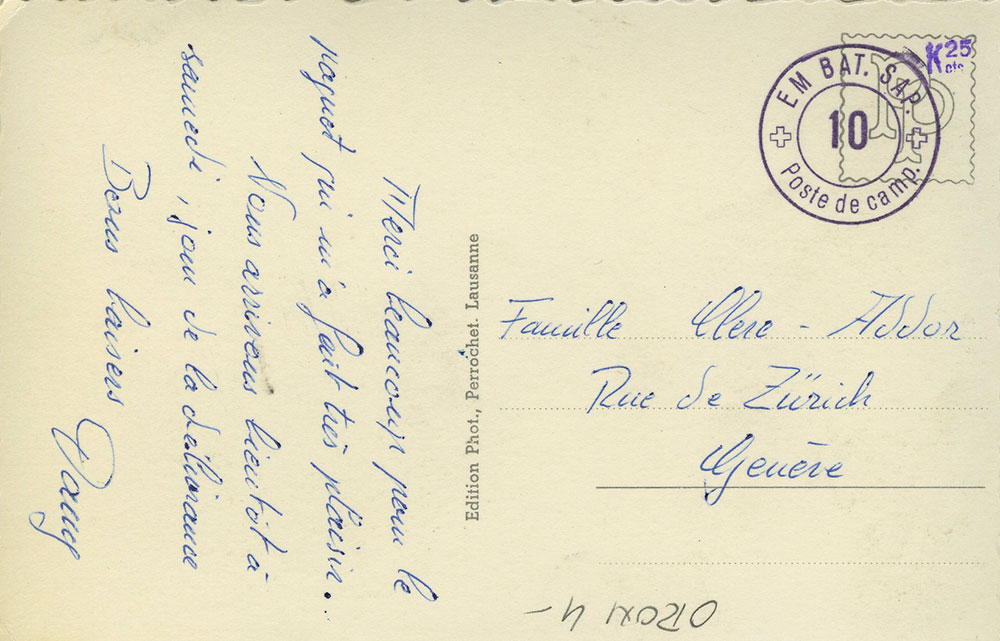 Merci beaucoup pour le
paquet qui m'a fait très plaisir...
Nous arrivons bientôt à
samedi, jour de la délivrance
Bons baisers
Edition Phot., Perrochet. Lausanne
EM BAT. SAP.
10
Poste de camp.
K 25
cts
Famille Clerc - Addor
Rue de Zürich
Genève
ORON 4-